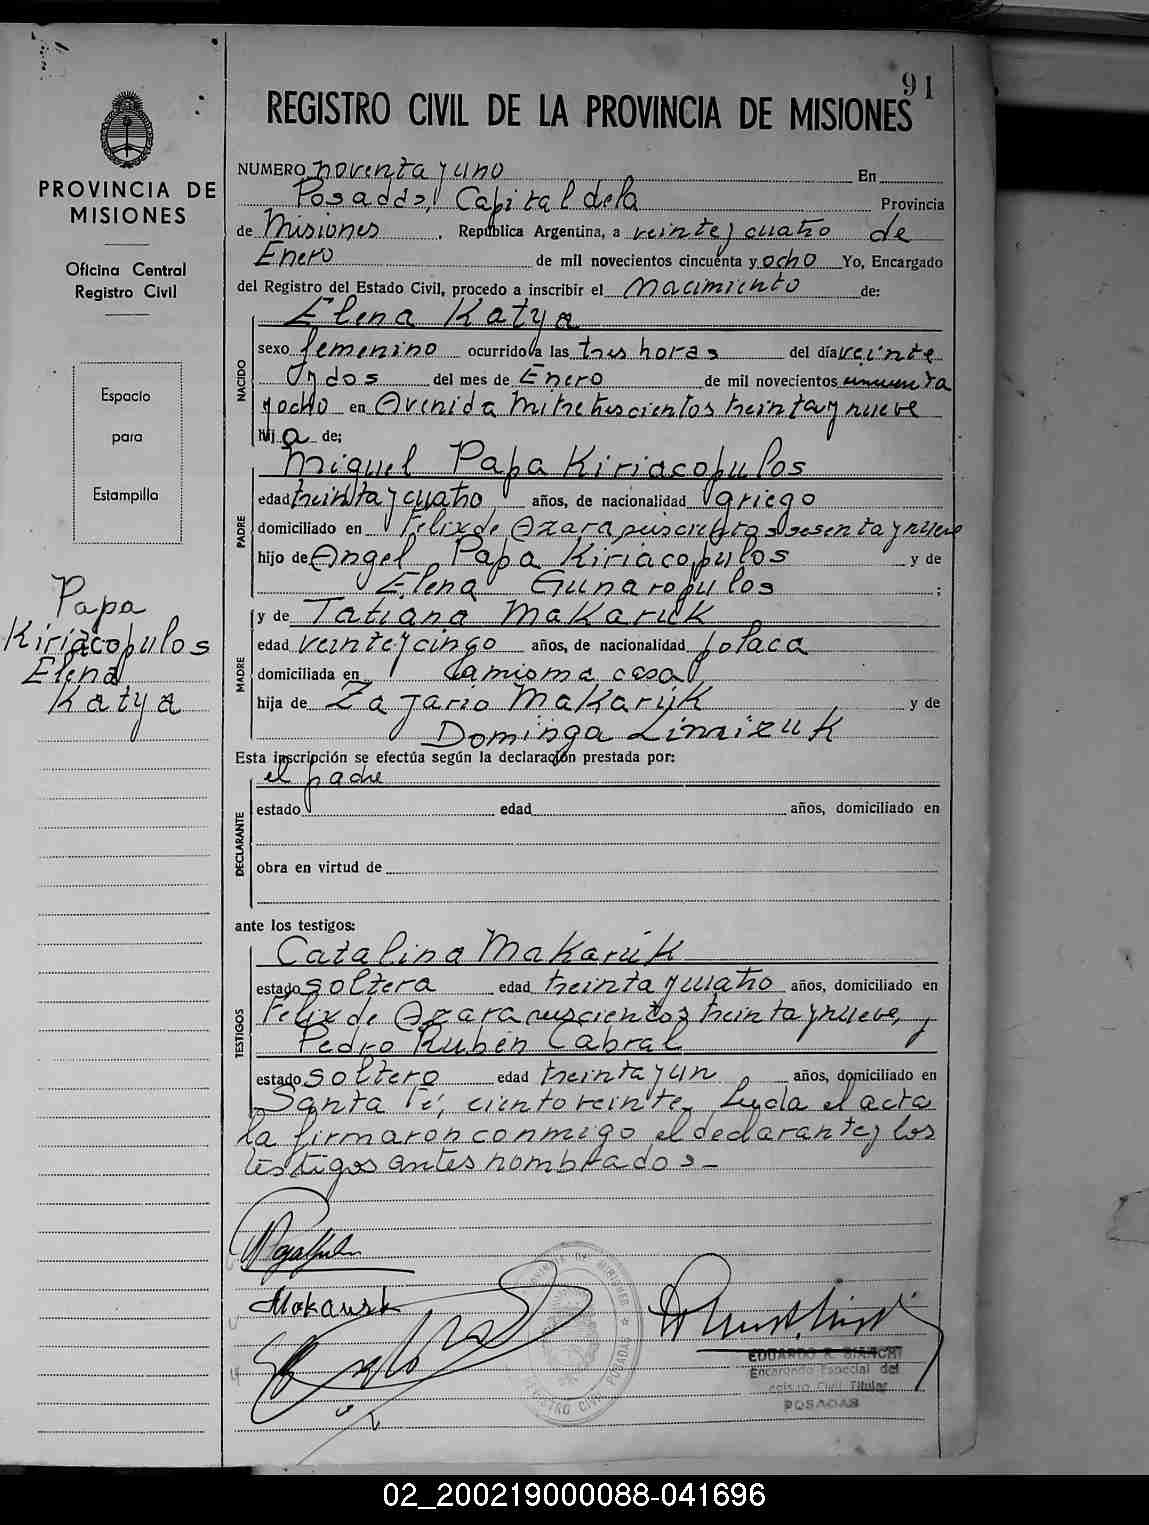 91
REGISTRO CIVIL DE LA PROVINCIA DE MISIONES
PROVINCIA DE
MISIONES
Oficina Central
Registro Civil
Espacio
para
Estampilla
Papa
Kiriacópulos
Elena
Katya
NUMERO noventa y uno En
Posadas, Capital de la Provincia
de Misiones, República Argentina, a veinte y cuatro de
Enero de mil novecientos cincuenta y ocho Yo, Encargado
del Registro del Estado Civil, procedo a inscribir el Nacimiento de:
NACIDO
Elena Katya
sexo femenino ocurrido a las tres horas del día veinte
y dos del mes de Enero de mil novecientos cincuenta
y ocho en Avenida Mitre trescientos treinta y nueve
hija de;
PADRE
Miguel Papa Kiriacópulos
edad treinta y cuatro, años, de nacionalidad griego
domiciliado en Felix de Azara seiscientos sesenta y nueve
hijo de Angel Papa Kiriacópulos y de
Elena Gunaropulos ;
y de Tatiana Makaruk
MADRE
edad veinte y cinco años, de nacionalidad polaca
domiciliada en la misma casa
hija de Zajario Makaruk y de
Dominga
Esta inscripción se efectúa según la declaración prestada por:
el padre
DECLARANTE
estado edad años, domiciliado en
obra en virtud de
ante los testigos:
TESTIGOS
Catalina Makaruk
estado soltera edad treinta y cuatro años, domiciliado en
Felix de Azara seiscientos treinta y nueve, y
Pedro Rubén Cabral
estado soltero edad treinta y un años, domiciliado en
Santa Fé, ciento veinte. Leída el acta
la firmaron conmigo el declarante y los
testigos antes nombrados.-
Makaruk
PROVINCIA DE MISIONES
REGISTRO CIVIL POSADAS
EDUARDO R. BIANCHI
Encargado Especial del
Registro Civil Titular
POSADAS
02_200219000088-041696